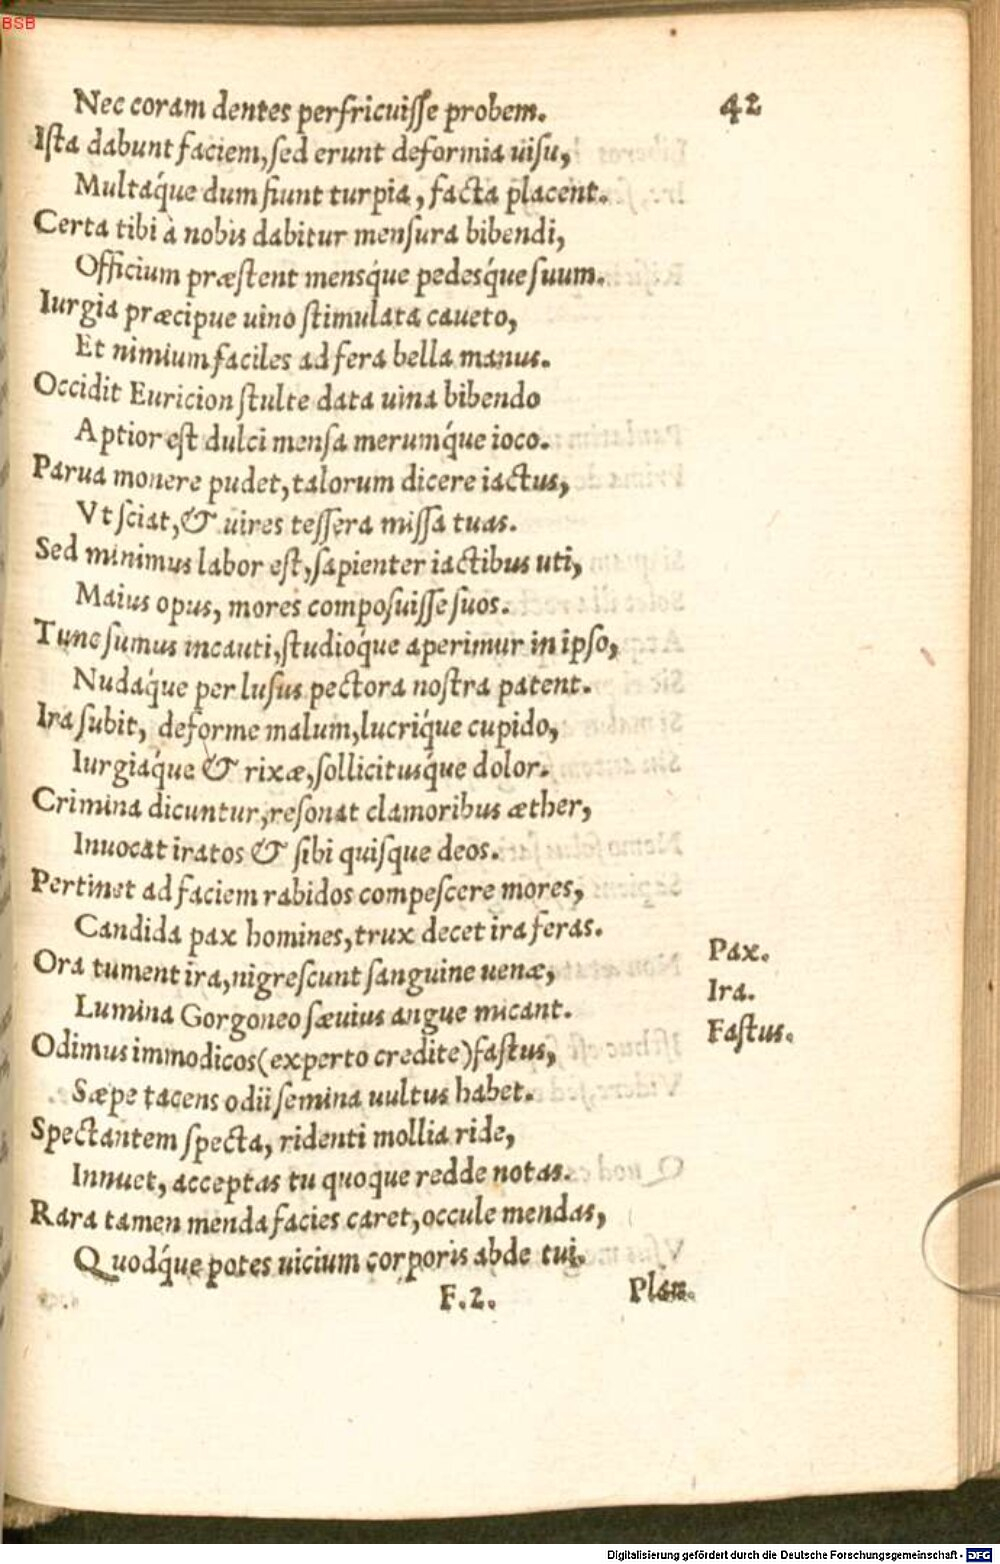 BSB
Nec coram dentes perfricuiſſe probem. 42
Iſta dabunt faciem, ſed erunt deformia uiſu,
Multáque dum fiunt turpia, facta placent.
Certa tibi à nobis dabitur menſura bibendi,
Officium præſtent menśque pedeśque ſuum.
Iurgia præcipue uino ſtimulata caueto,
Et nimium faciles ad fera bella manus.
Occidit Euricion ſtulte data uina bibendo
Aptior eſt dulci menſa merumq́ue ioco.
Parua monere pudet, talorum dicere iactus,
Vt ſciat, & uires teſſera miſſa tuas.
Sed minimus labor eſt, ſapienter iactibus uti,
Maius opus, mores compoſuiſſe ſuos.
Tunc ſumus incauti, ſtudioq́ue aperimur in ipſo,
Nudáque per luſus pectora noſtra patent.
Ira ſubit, deforme malum, lucriq́ue cupido,
Iurgiáque & rixæ, ſollicituśque dolor.
Crimina dicuntur, reſonat clamoribus æther,
Inuocat iratos & ſibi quiſque deos.
Pertinet ad faciem rabidos compeſcere mores,
Candida pax homines, trux decet ira feras.
Pax.
Ora tument ira, nigreſcunt ſanguine uenæ,
Ira.
Lumina Gorgoneo ſæuius angue micant.
Faſtus.
Odimus immodicos (experto credite) faſtus,
Sæpe tacens odii ſemina uultus habet.
Spectantem ſpecta, ridenti mollia ride,
Innuet, acceptas tu quoque redde notas.
Rara tamen menda facies caret, occule mendas,
Quodq́ue potes uicium corporis abde tui.
F.2.
Digitalisierung gefördert durch die Deutsche Forschungsgemeinschaft - DFG